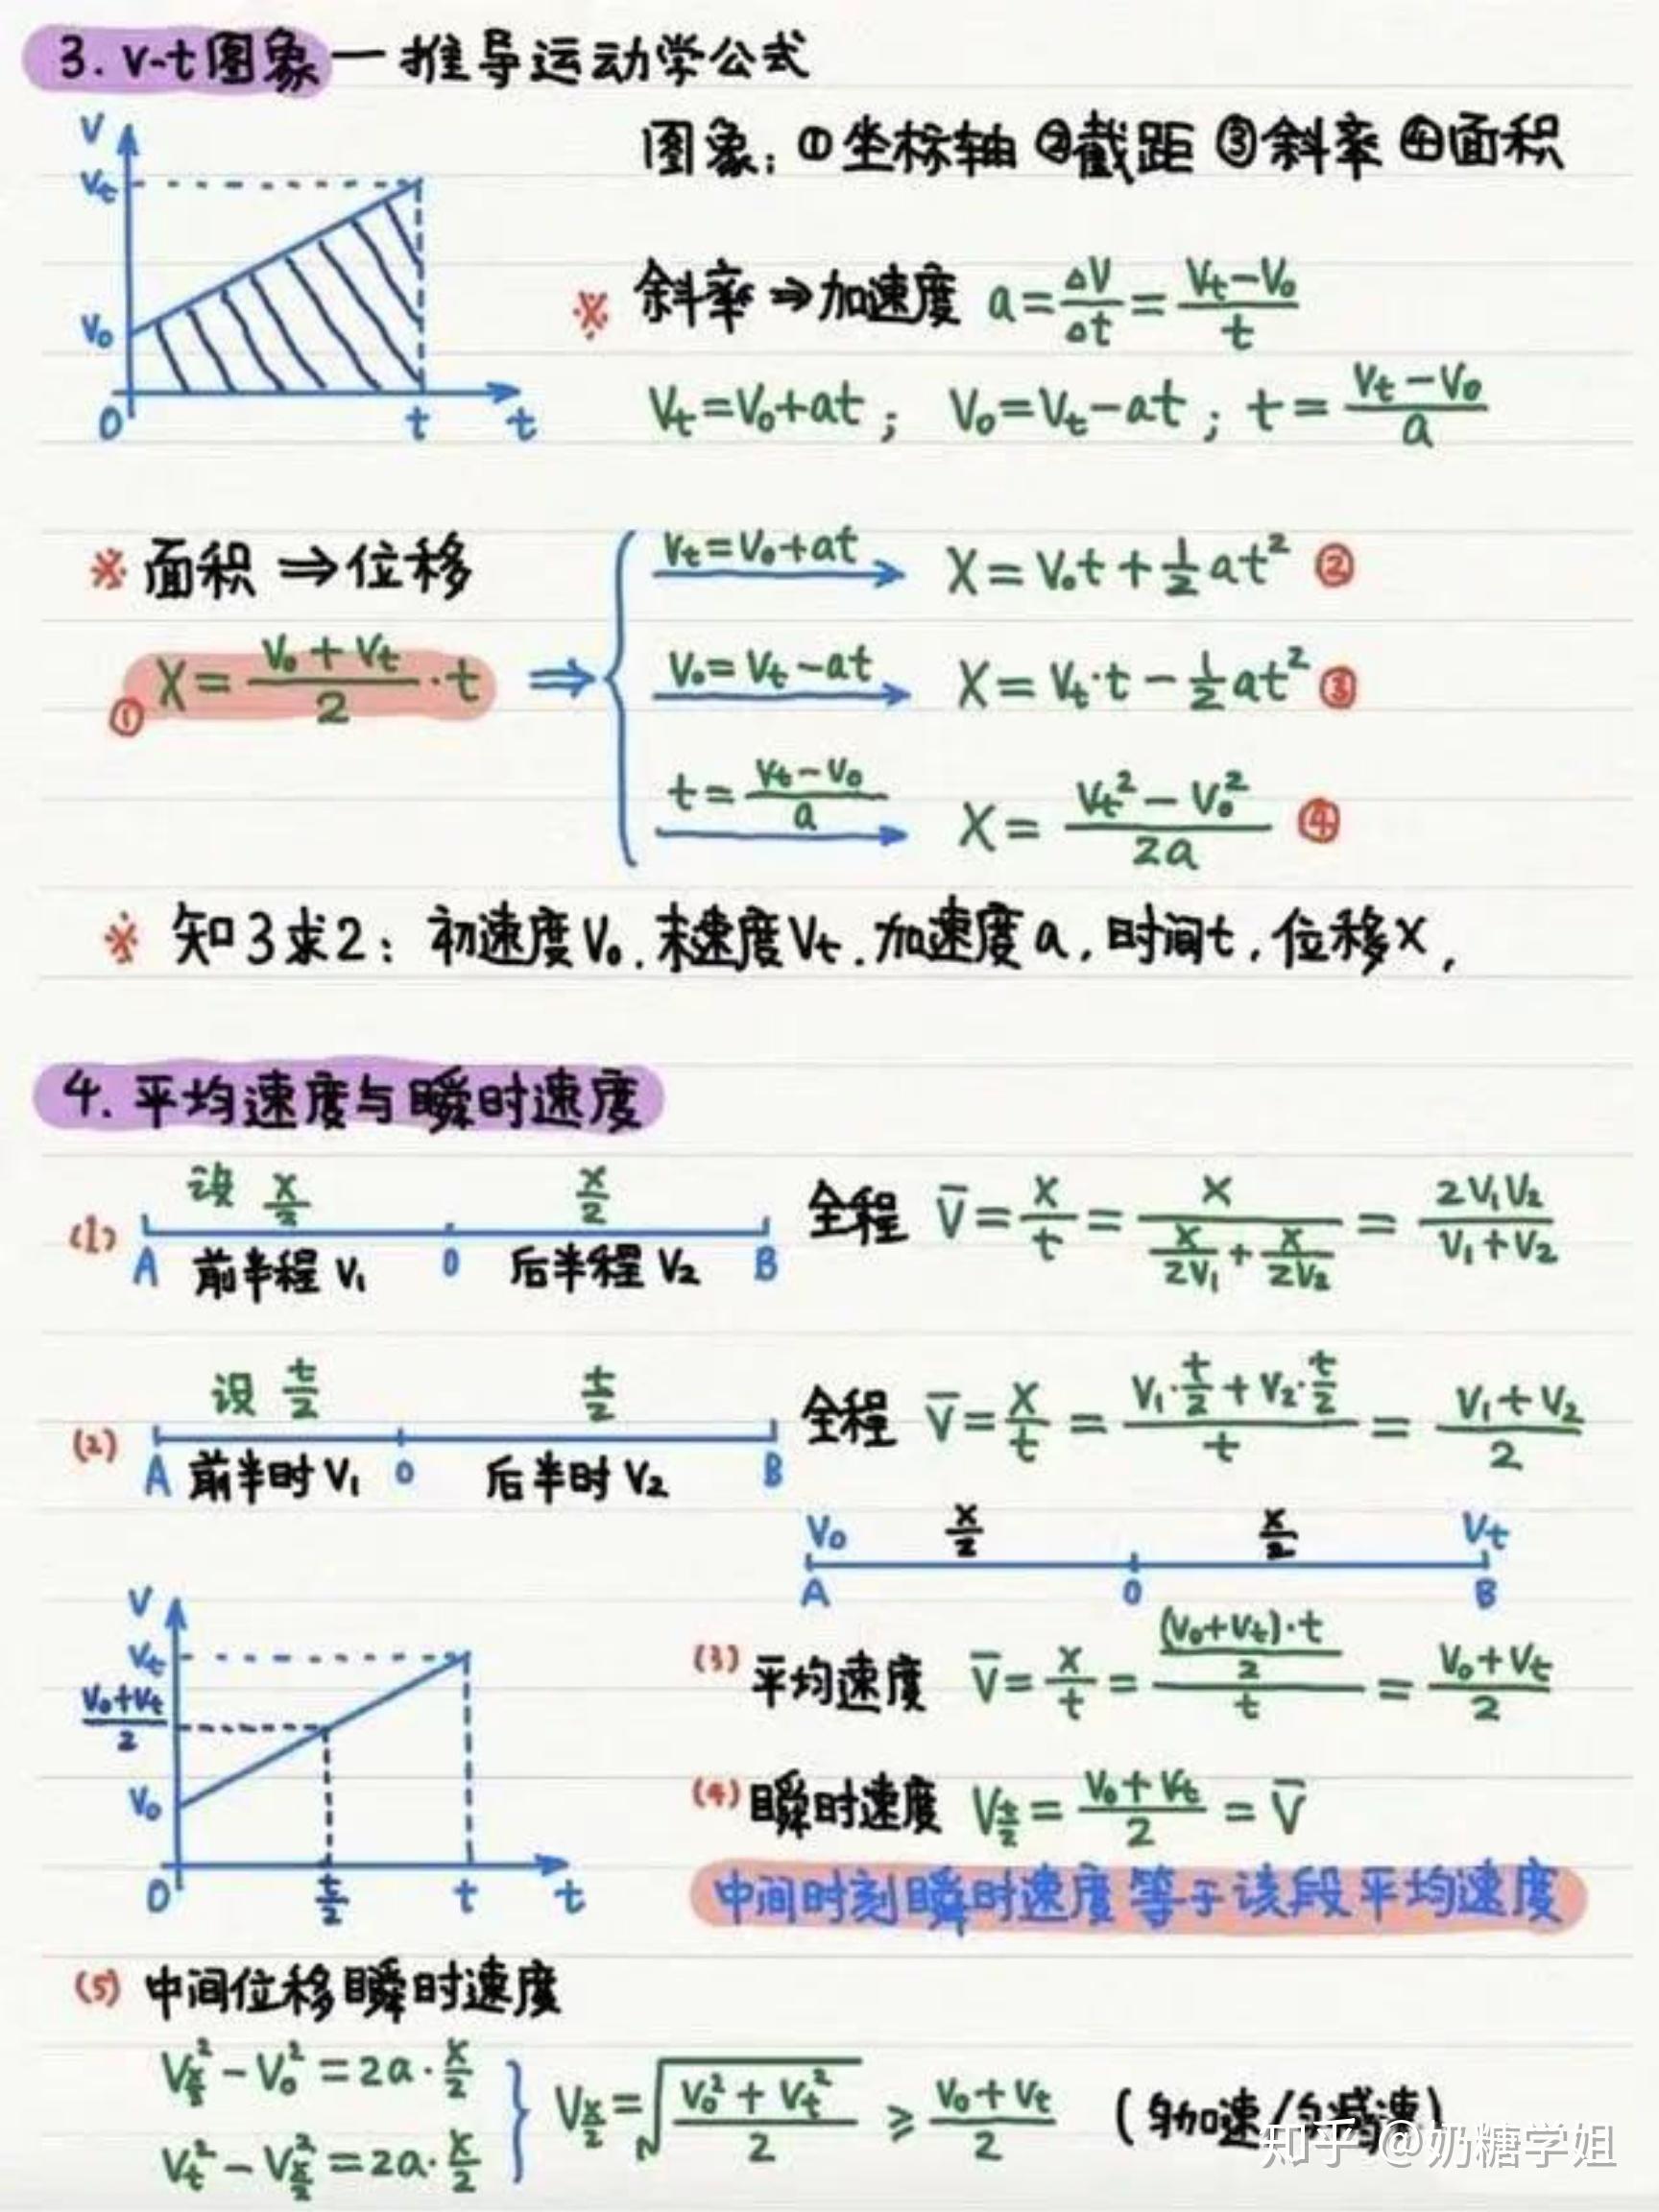 3. v-t图象—推导运动学公式
图象: ①坐标轴 ②截距 ③斜率 ④面积
V
Vt
V₀
0 t t
※ 斜率⇒加速度 a=ΔV/Δt=(Vt-V₀)/t
Vt=V₀+at; V₀=Vt-at; t=(Vt-V₀)/a
※ 面积⇒位移
① X=(V₀+Vt)/2·t ⇒
Vt=V₀+at → X=V₀t+½at² ②
V₀=Vt-at → X=Vt·t-½at² ③
t=(Vt-V₀)/a → X=(Vt²-V₀²)/2a ④
※ 知3求2: 初速度V₀. 末速度Vt. 加速度a, 时间t, 位移X,
4. 平均速度与瞬时速度
(1) 设 x/2 x/2
A 前半程 V₁ 0 后半程 V₂ B
全程 V̄=x/t=x/(x/2V₁+x/2V₂)=2V₁V₂/(V₁+V₂)
(2) 设 t/2 t/2
A 前半时 V₁ 0 后半时 V₂ B
全程 V̄=x/t=(V₁·t/2+V₂·t/2)/t=(V₁+V₂)/2
V₀ x/2 x/2 Vt
A 0 B
V
Vt
(V₀+Vt)/2
V₀
0 t/2 t t
(3) 平均速度 V̄=x/t=((V₀+Vt)·t/2)/t=(V₀+Vt)/2
(4) 瞬时速度 V_{t/2}=(V₀+Vt)/2=V̄
中间时刻瞬时速度等于该段平均速度
(5) 中间位移瞬时速度
V_{x/2}²-V₀²=2a·x/2
Vt²-V_{x/2}²=2a·x/2
} V_{x/2}=√((V₀²+Vt²)/2) ≥ (V₀+Vt)/2 (匀加速/匀减速)
知乎 @奶糖学姐